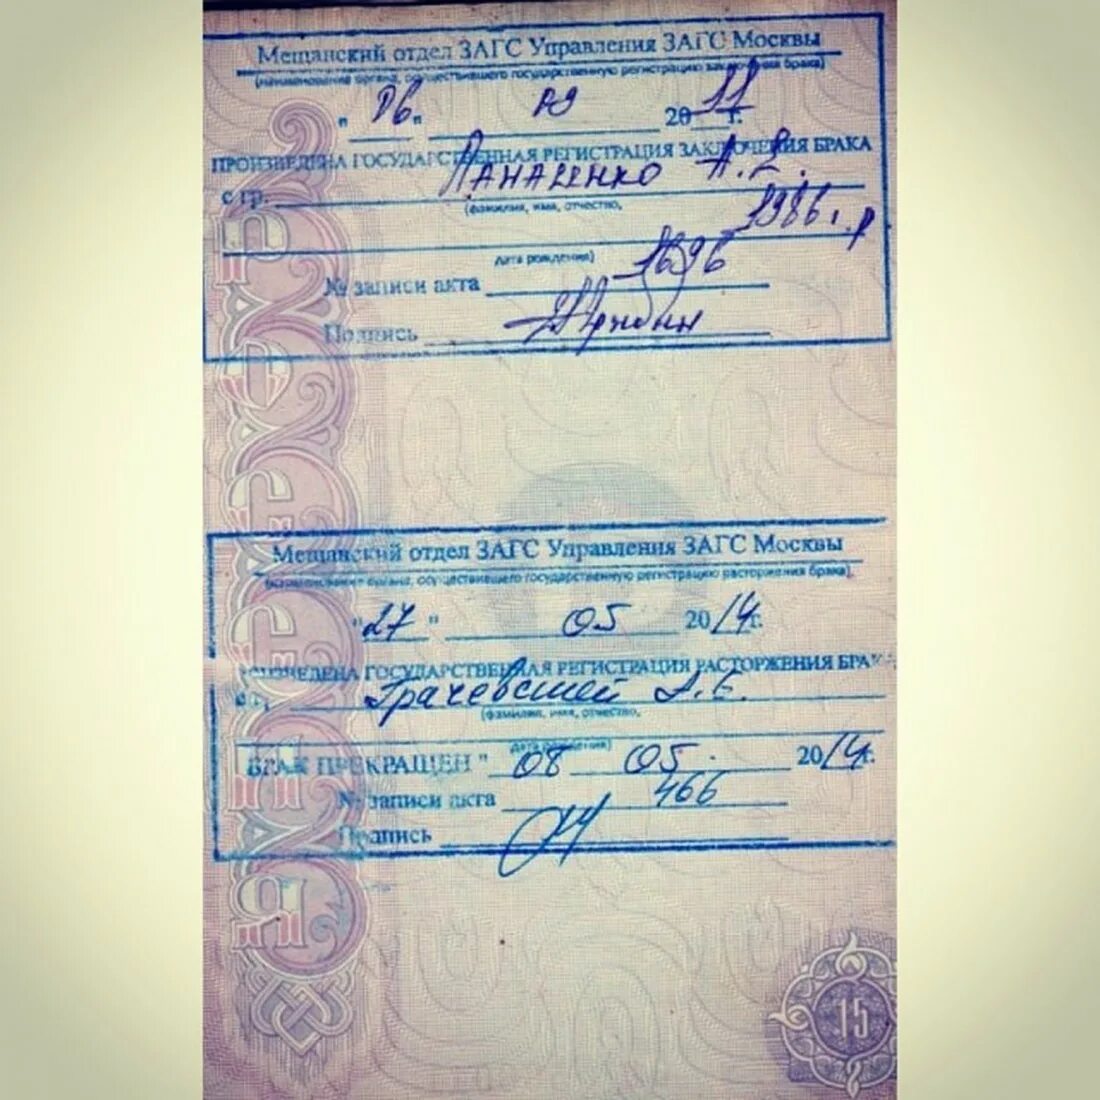 Мещанский отдел ЗАГС Управления ЗАГС Москвы
(наименование органа, осуществившего государственную регистрацию заключения брака)
" 06 " 09 2011 г.
ПРОИЗВЕДЕНА ГОСУДАРСТВЕННАЯ РЕГИСТРАЦИЯ ЗАКЛЮЧЕНИЯ БРАКА
с гр. Панасенко А.
(фамилия, имя, отчество,
1986 г.р
дата рождения)
№ записи акта 1696
Подпись
Мещанский отдел ЗАГС Управления ЗАГС Москвы
(наименование органа, осуществившего государственную регистрацию расторжения брака)
"27" 05 2014г.
ПРОИЗВЕДЕНА ГОСУДАРСТВЕННАЯ РЕГИСТРАЦИЯ РАСТОРЖЕНИЯ БРАКА
с гр.
(фамилия, имя, отчество,
дата рождения)
БРАК ПРЕКРАЩЕН " 08 05. 2014г.
№ записи акта 466
Подпись
15